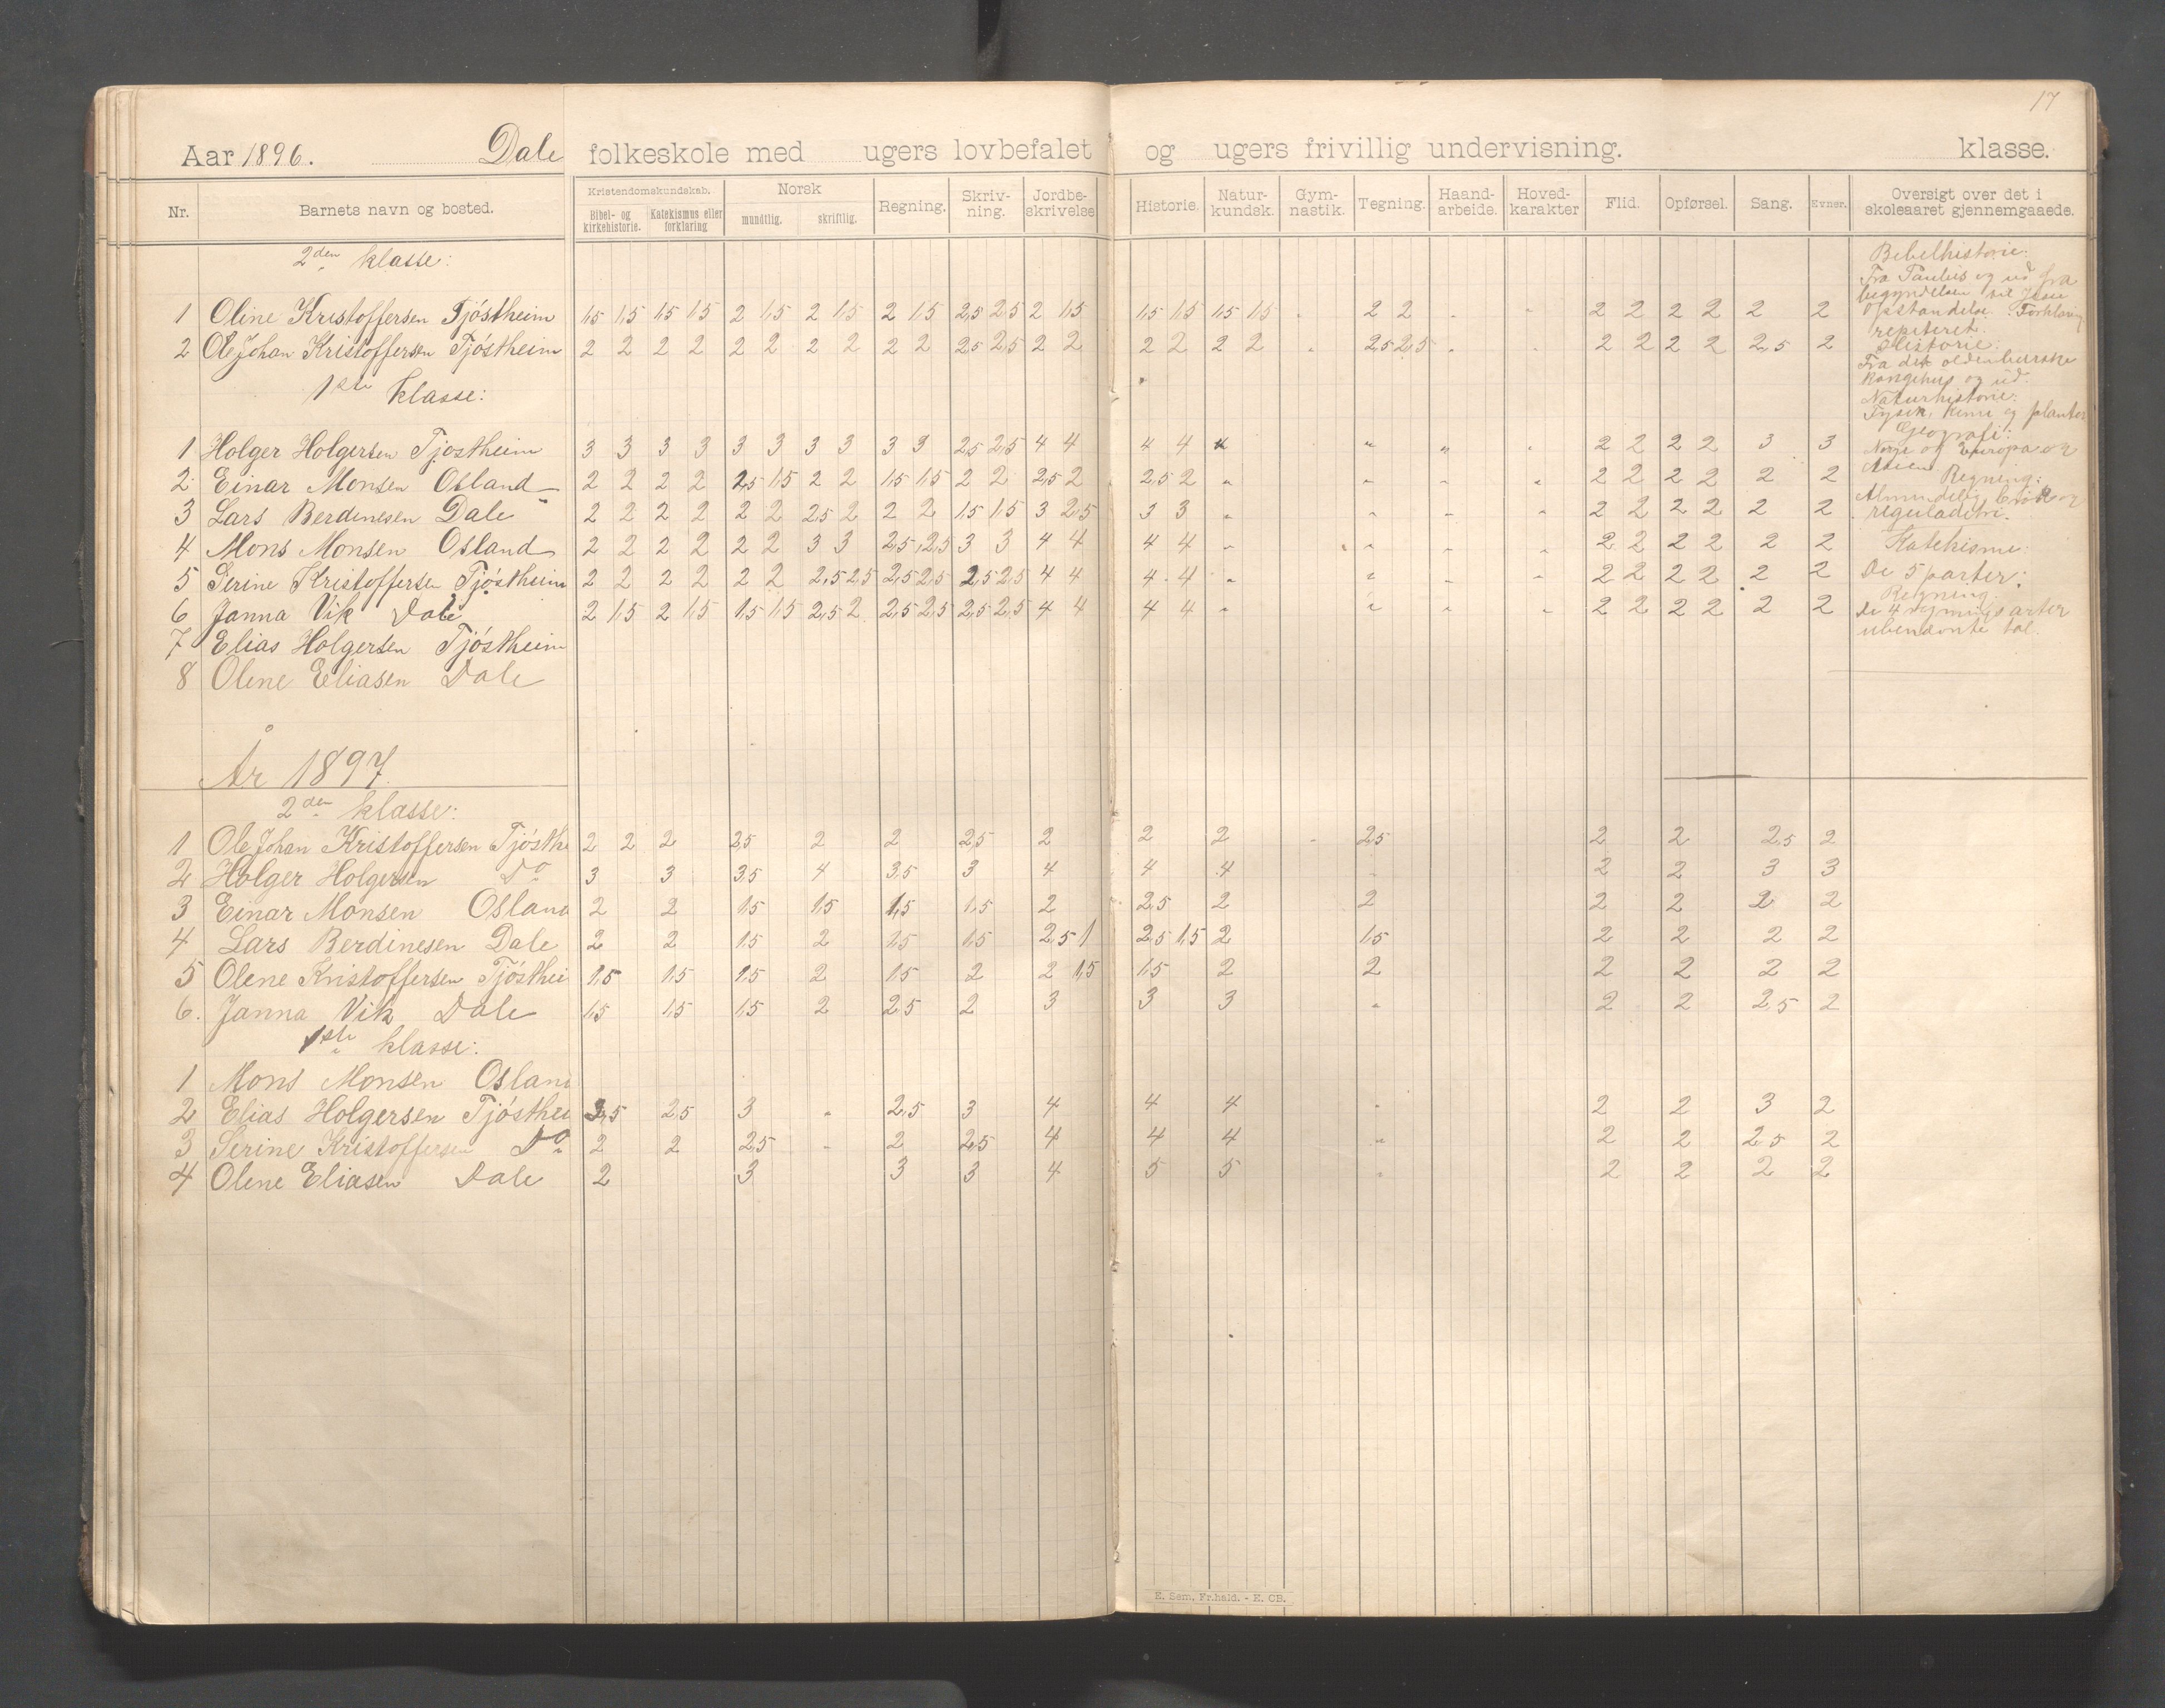 17
Aar 1896. Dale folkeskole med ugers lovbefalet og ugers frivillig undervisning. klasse.
Nr. Barnets navn og bosted. Kristendomskundskab. Bibel- og kirkehistorie. Katekismus eller forklaring Norsk mundtlig. skriftlig. Regning. Skriv-ning. Jordbe-skrivelse Historie. Natur-kundsk. Gym-nastik. Tegning. Haand-arbeide. Hoved-karakter Flid. Opførsel. Sang. Evner. Oversigt over det i skoleaaret gjennemgaaede.
2den klasse:
1 Oline Kristoffersen Tjöstheim 1,5 1,5 1,5 1,5 2 1,5 2 1,5 2 1,5 2,5 2,5 2 1,5 1,5 1,5 1,5 1,5 2 2 2 2 2 2 2 2
2 Ole Johan Kristoffersen Tjöstheim 2 2 2 2 2 2 2 2 2 2 2,5 2,5 2 2 2 2 2 2 2,5 2,5 2 2 2 2 2,5 2
1ste klasse:
1 Holger Holgersen Tjostheim 3 3 3 3 3 3 3 3 3 3 2,5 2,5 4 4 4 4 " " " 2 2 2 2 3 3
2 Einar Monsen Osland 2 2 2 2 2,5 1,5 2 2 1,5 1,5 2 2 2,5 2 2,5 2 " " " " 2 2 2 2 2 2
3 Lars Berdinesen Dale 2 2 2 2 2 2 2,5 2 2 2 1,5 1,5 3 2,5 3 3 " " " " 2 2 2 2 2 2
4 Mons Monsen Osland 2 2 2 2 2 2 3 3 2,5 2,5 3 3 4 4 4 4 " " " " 2 2 2 2 2 2
5 Serine Kristoffersen Tjöstheim 2 2 2 2 2 2 2,5 2,5 2,5 2,5 2,5 2,5 4 4 4 4 " " " " 2 2 2 2 2 2
6 Janna Vik Dale 2 1,5 2 1,5 1,5 1,5 2,5 2 2,5 2,5 2,5 2,5 4 4 4 4 " " " " 2 2 2 2 2 2
7 Elias Holgersen Tjöstheim
8 Olene Eliasen Dale
Bibelhistorie:
Fra Paulus og ud fra
begyndelsen til Jesu
Opstandelse. Forklaring
repiteret.
Historie:
Fra det oldenburske
Kongehus og ud.
Naturhistorie:
Fysik, Kemi og planter
Geografi:
Norge og Europa og
Asien
Regning:
Almindelig brøk og
reguladetri.
Katekisme:
De 5 parter:
Regning:
De 4 regningsarter
ubenævnte tal.
År 1897.
2den klasse:
1 Ole Johan Kristoffersen Tjösthe 2 2 2 2,5 2 2 2,5 2 2 2 2,5 2 2 2,5 2
2 Holger Holgersen Do 3 3 3,5 4 3,5 3 4 4 4 2 2 3 3
3 Einar Monsen Osland 2 2 1,5 1,5 1,5 1,5 2 2,5 2 2 2 2 2 2
4 Lars Berdinesen Dale 2 2 1,5 2 1,5 1,5 2,5 1 2,5 1,5 2 1,5 2 2 2 2
5 Olene Kristoffersen Tjösthei 1,5 1,5 1,5 2 1,5 2 2 1,5 1,5 2 2 2 2 2 2
6. Janna Vik Dale 1,5 1,5 1,5 2 2,5 2 3 3 3 " 2 2 2,5 2
1ste klasse:
1 Mons Monsen Oslan
2 Elias Holgersen Tjösthei 2,5 2,5 3 " 2,5 3 4 4 4 " 2 2 3 2
3 Serine Kristoffersen Do 2 2 2,5 " 2 2,5 4 4 4 " 2 2 2,5 2
4 Olene Eliasen Dale 2 3 3 3 4 5 5 " 2 2 2 2
E. Sem, Fr.hald. - E. CB.